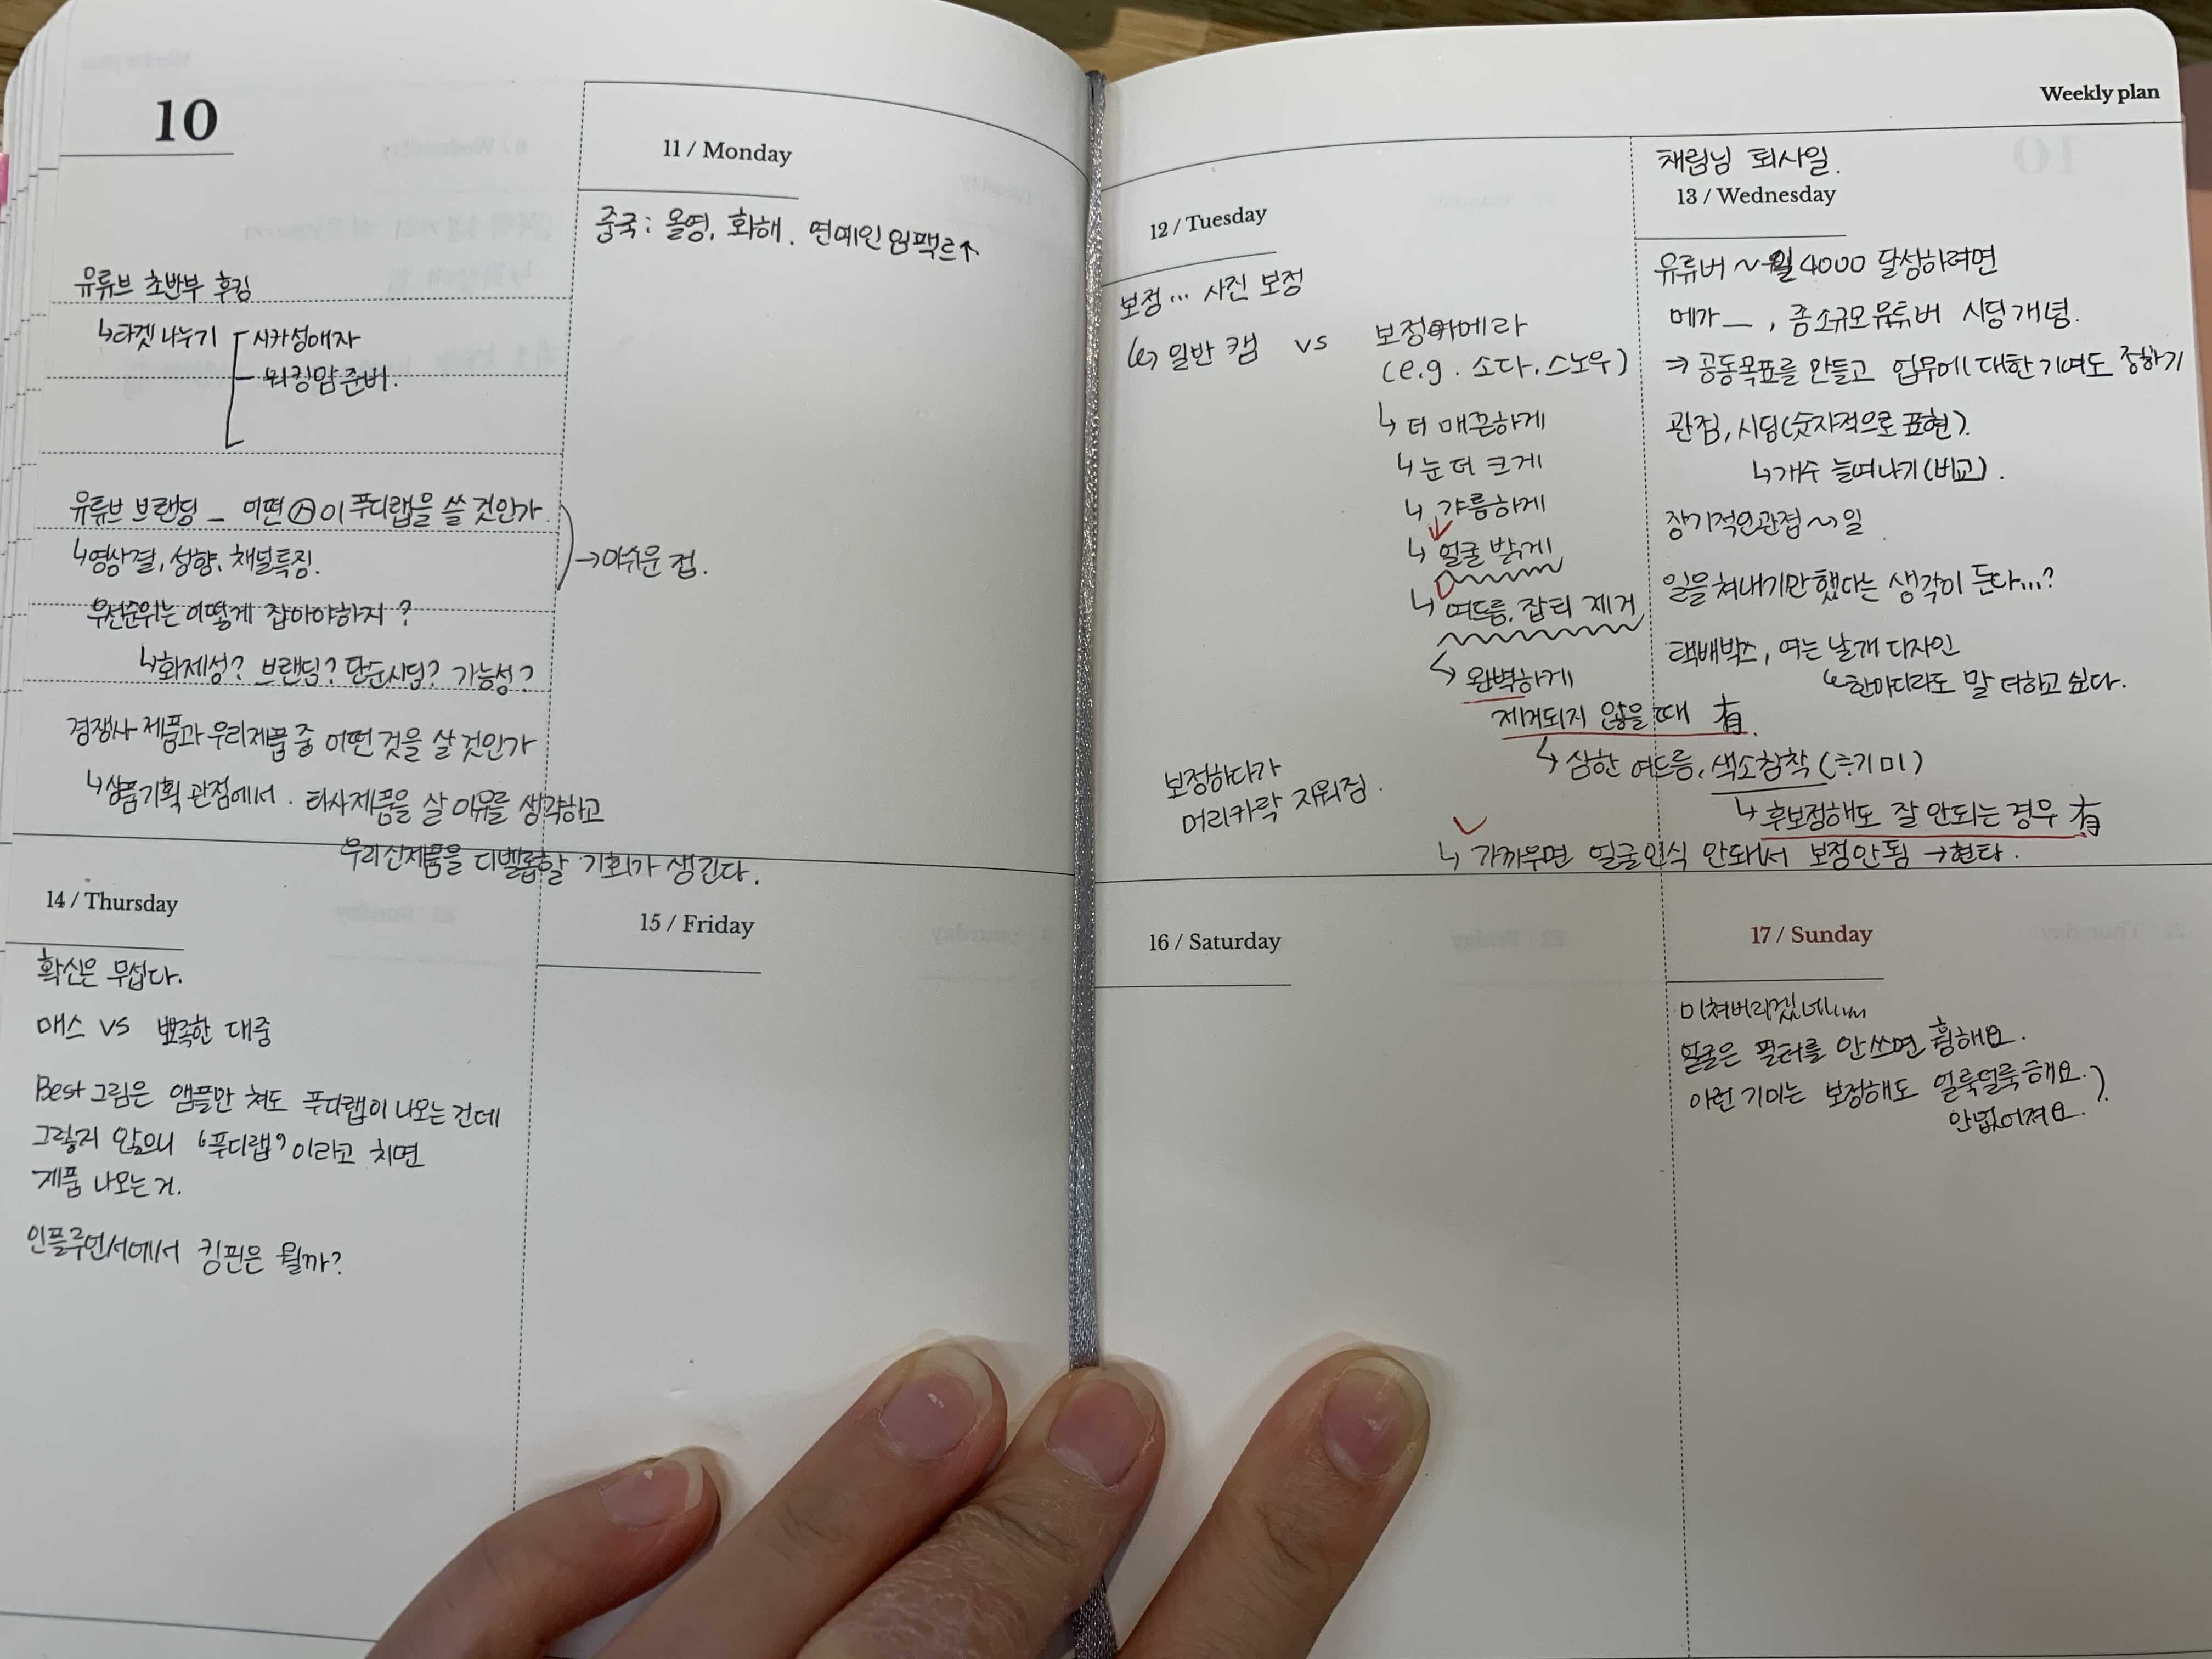 10
유튜브 초반부 후킹
↳타겟 나누기 시카성애자
워킹맘 준버.
유튜브 브랜딩 _ 어떤 ㅅ이 푸디랩을 쓸 것인가.
↳영상결, 성향, 채널특징.
→아쉬운 점.
우선순위는 어떻게 잡아야하지?
↳화제성? 브랜딩? 단순시딩? 가능성?
경쟁사 제품과 우리제품 중 어떤 것을 살 것인가
↳상품기획 관점에서. 타사제품을 살 이유를 생각하고
우리신제품을 디벨롭할 기회가 생긴다.
11 / Monday
중국: 올영, 화해. 연예인 임팩트↑
Weekly plan
12 / Tuesday
보정... 사진 보정
일반 캠 vs 보정카메라
(e.g. 소다, 스노우)
↳ 더 매끈하게
↳ 눈 더 크게
↳ 갸름하게
↳ 얼굴 밝게
↳ 여드름, 잡티 제거
↳ 완벽하게
제거되지 않을 때 有.
↳ 심한 여드름, 색소침착 (기미)
↳ 후보정해도 잘 안되는 경우 有
보정하다가
머리카락 지워짐.
↳ 가까우면 얼굴인식 안돼서 보정안됨 →현타.
채림님 퇴사일.
13 / Wednesday
유튜버 ~ 월 4000 달성하려면
메가 _, 중소규모 유튜버 시딩개념.
⇒ 공동목표를 만들고 업무에 대한 기여도 정하기
관점, 시딩(숫자적으로 표현).
↳개수 늘여나가기(비교).
장기적인관점 ~ 일
일을 쳐내기만 했다는 생각이 든다...?
택배박스, 여는 날개 디자인
↳한마디라도 말 더하고 싶다.
14 / Thursday
확신은 무섭다.
매스 vs 뾰족한 대중
Best 그림은 앰플만 쳐도 푸디랩이 나오는 건데
그렇지 않으니 '푸디랩'이라고 치면
제품 나오는 거.
인플루언서에서 킹핀은 뭘까?
15 / Friday
16 / Saturday
17 / Sunday
미쳐버리겠네
얼굴은 필터를 안쓰면 휑해요.
이런 기미는 보정해도 얼룩덜룩해요.
안없어져요.